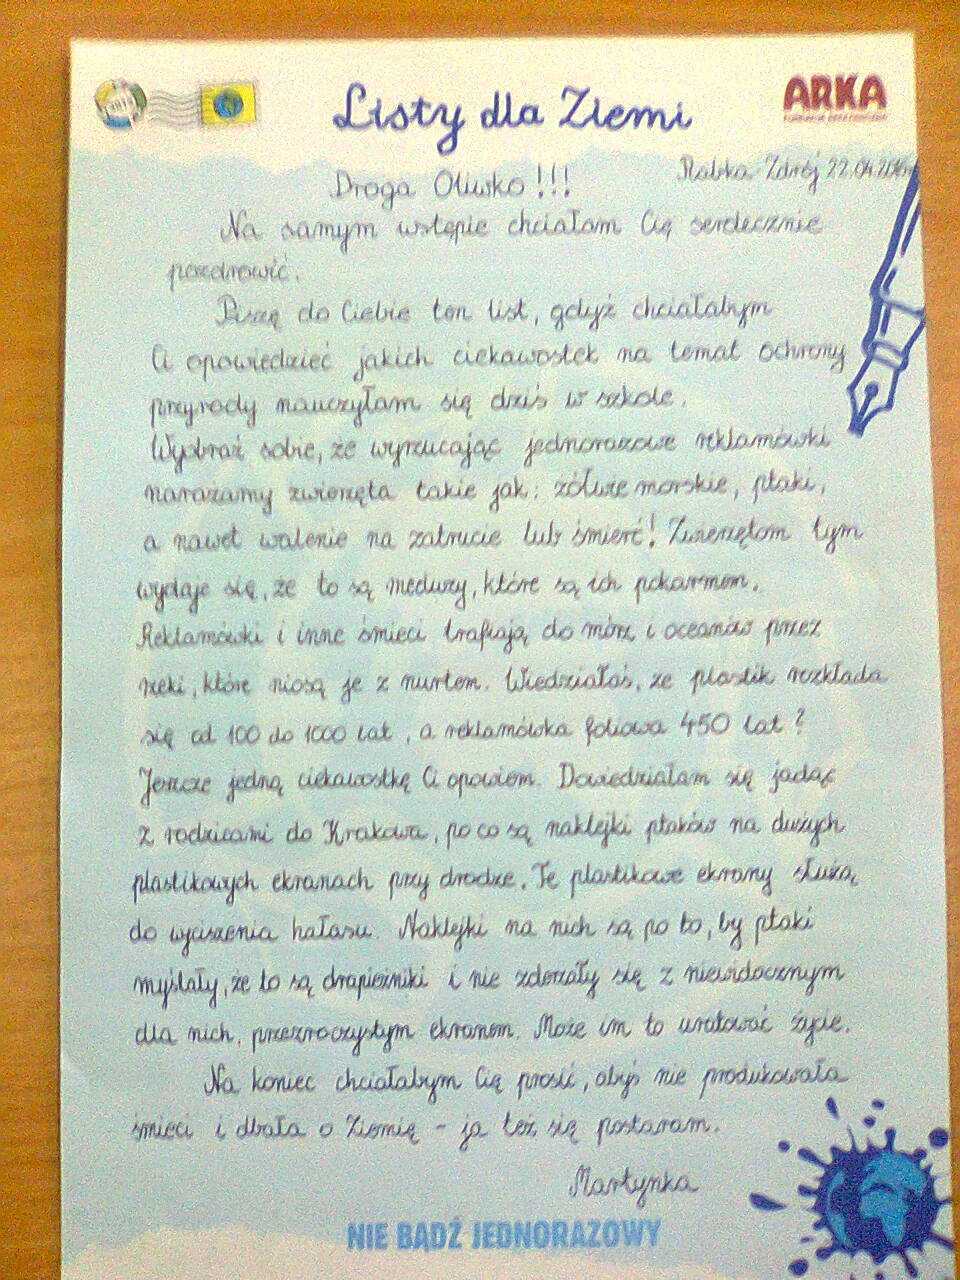 Listy dla Ziemi
ARKA
Rabka-Zdrój 22.04.2016r
Droga Oliwko!!!
Na samym wstępie chciałam Cię serdecznie
pozdrowić.
Piszę do Ciebie ten list, gdyż chciałabym
Ci opowiedzieć jakich ciekawostek na temat ochrony
przyrody nauczyłam się dziś w szkole.
Wyobraź sobie, że wyrzucając jednorazowe reklamówki
narażamy zwierzęta takie jak: żółwie morskie, ptaki,
a nawet walenie na zatrucie lub śmierć! Zwierzętom tym
wydaje się, że to są meduzy, które są ich pokarmem.
Reklamówki i inne śmieci trafiają do mórz i oceanów przez
rzeki, które niosą je z nurtem. Wiedziałaś, że plastik rozkłada
się od 100 do 1000 lat, a reklamówka foliowa 450 lat?
Jeszcze jedną ciekawostkę Ci opowiem. Dowiedziałam się jadąc
z rodzicami do Krakowa, po co są naklejki ptaków na dużych
plastikowych ekranach przy drodze. Te plastikowe ekrany służą
do wyciszenia hałasu. Naklejki na nich są po to, by ptaki
myślały, że to są drapieżniki i nie zderzały się z niewidocznym
dla nich, przezroczystym ekranem. Może im to uratować życie.
Na koniec chciałabym Cię prosić, abyś nie produkowała
śmieci i dbała o Ziemię - ja też się postaram.
Martynka
NIE BĄDŹ JEDNORAZOWY